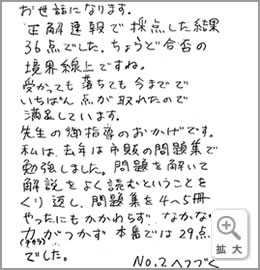 お世話になります。
正解速報で採点した結果
36点でした。ちょうど合否の
境界線上ですね。
受かっても落ちても今までで
いちばん点が取れたので
満足しています。
先生の御指導のおかげです。
私は、去年は市販の問題集で
勉強しました。問題を解いて
解説をよく読むということを
くり返し、問題集を4〜5冊
やったにもかかわらず なかなか
力がつかず 本番では29点
でした。
No.2へつづく
拡大